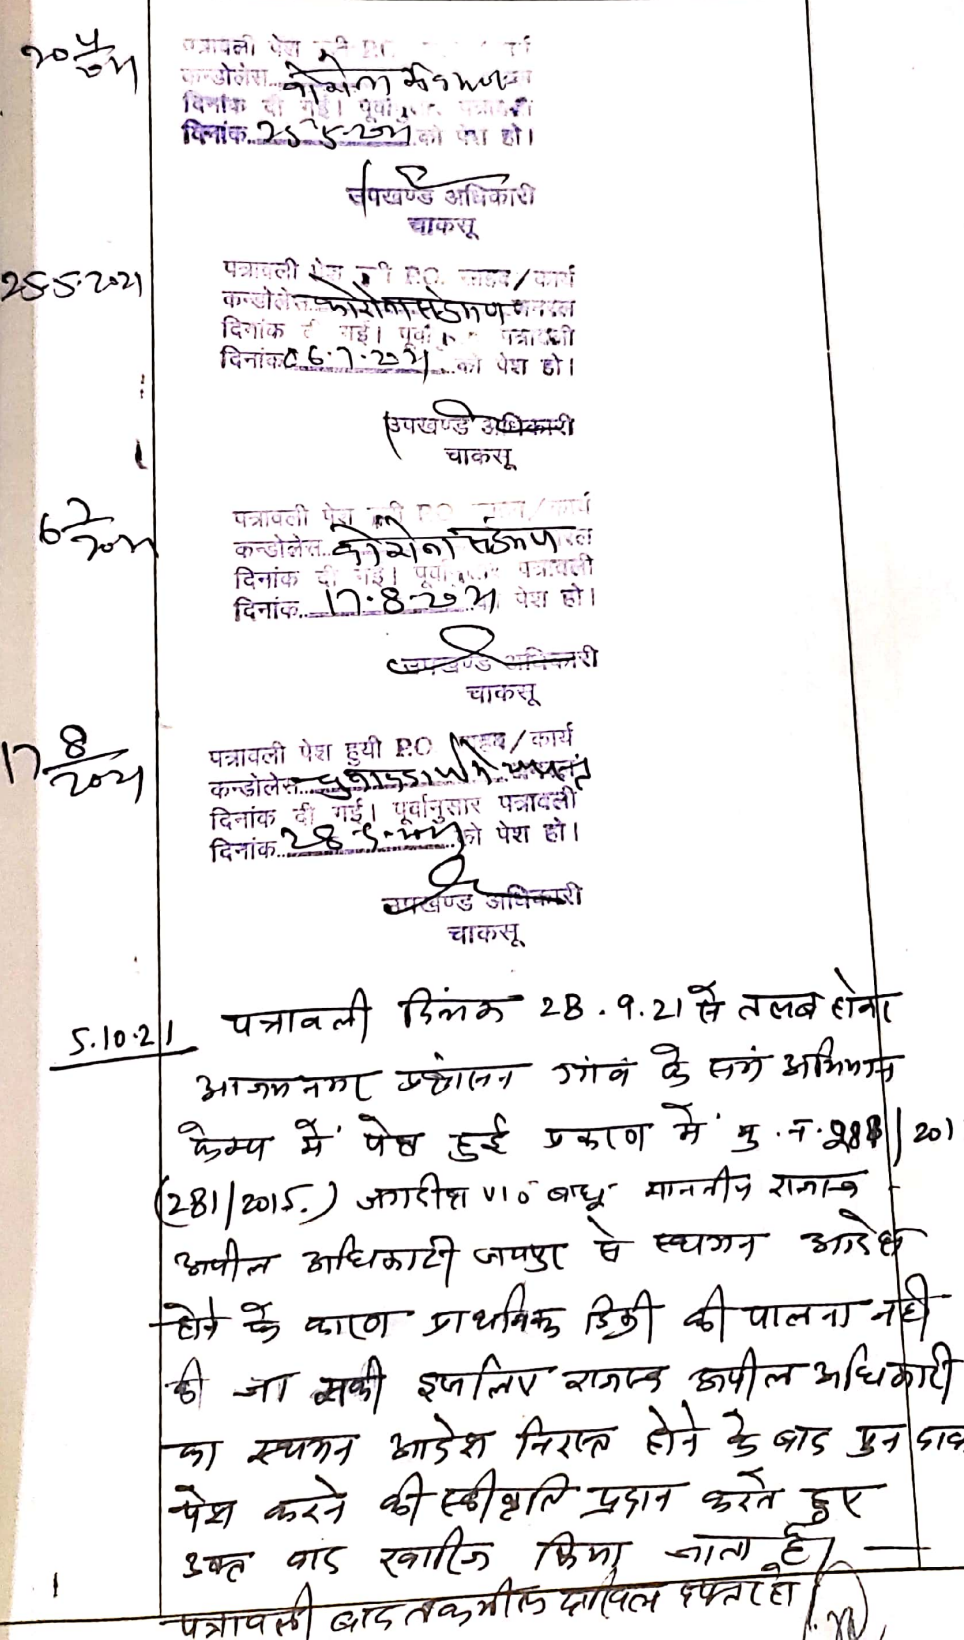 20/4/21
पत्रावली पेश हुयी P.O.
कन्डोलेंस कोरोना संक्रमण
दिनांक दी गई। पूर्वानुसार पत्रावली
दिनांक 25-5-2021 को पेश हो।
उपखण्ड अधिकारी
चाकसू
25.5.2021
पत्रावली पेश हुयी P.O. साहब/कार्य
कन्डोलेंस कोरोना संक्रमण
दिनांक दी गई। पूर्वानुसार पत्रावली
दिनांक 06.7.2021 को पेश हो।
उपखण्ड अधिकारी
चाकसू
6/7/2021
पत्रावली पेश हुयी P.O. साहब/कार्य
कन्डोलेंस कोरोना संक्रमण
दिनांक दी गई। पूर्वानुसार पत्रावली
दिनांक 17.8.2021 को पेश हो।
उपखण्ड अधिकारी
चाकसू
17/8/2021
पत्रावली पेश हुयी P.O. साहब/कार्य
कन्डोलेंस
दिनांक दी गई। पूर्वानुसार पत्रावली
दिनांक 28 को पेश हो।
उपखण्ड अधिकारी
चाकसू
5.10.21 पत्रावली दिनांक 28.9.21 से तलब होकर
आजमनगर प्रशासन गांव के संग अभियान
केम्प में पेश हुई प्रकरण में मु.न. /201
(281/2015.) जगदीश v/o बाबू माननीय राजस्व
अपील अधिकारी जयपुर से स्थगन आदेश
होने के कारण प्राथमिक डिक्री की पालना नही
की जा सकी इसलिए राजस्व अपील अधिकारी
का स्थगन आदेश निरस्त होने के बाद पुन
पेश करने की स्वीकृति प्रदान करते हुए
उक्त वाद खारिज किया जाता है।
पत्रावली बाद तकमील दाखिल दफ्तर हो।